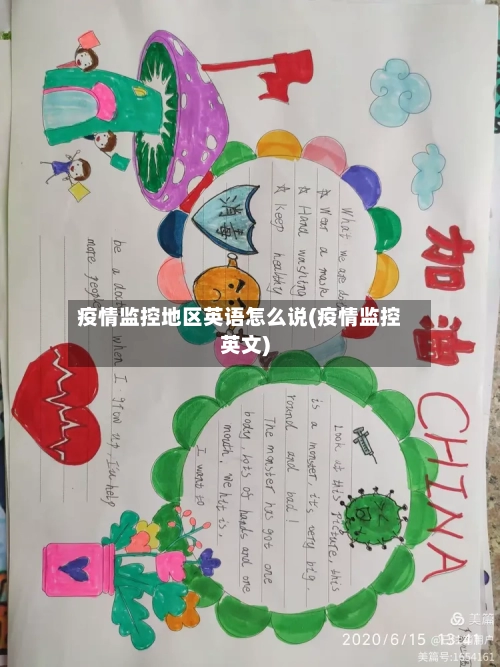 疫情监控地区英语怎么说(疫情监控
英文)
加油
CHINA
消毒
What we are
☆ Wear a mask
☆ Hand washing
☆ Keep healthy
Look at this picture, this
is a monster, it's very big,
round and bad!
The monster has got one
body, lots of hands and one
mouth. We
I want to
be a when I grow up, I'll help
more people
美篇
2020/6/15 13:41
美篇号:1554161